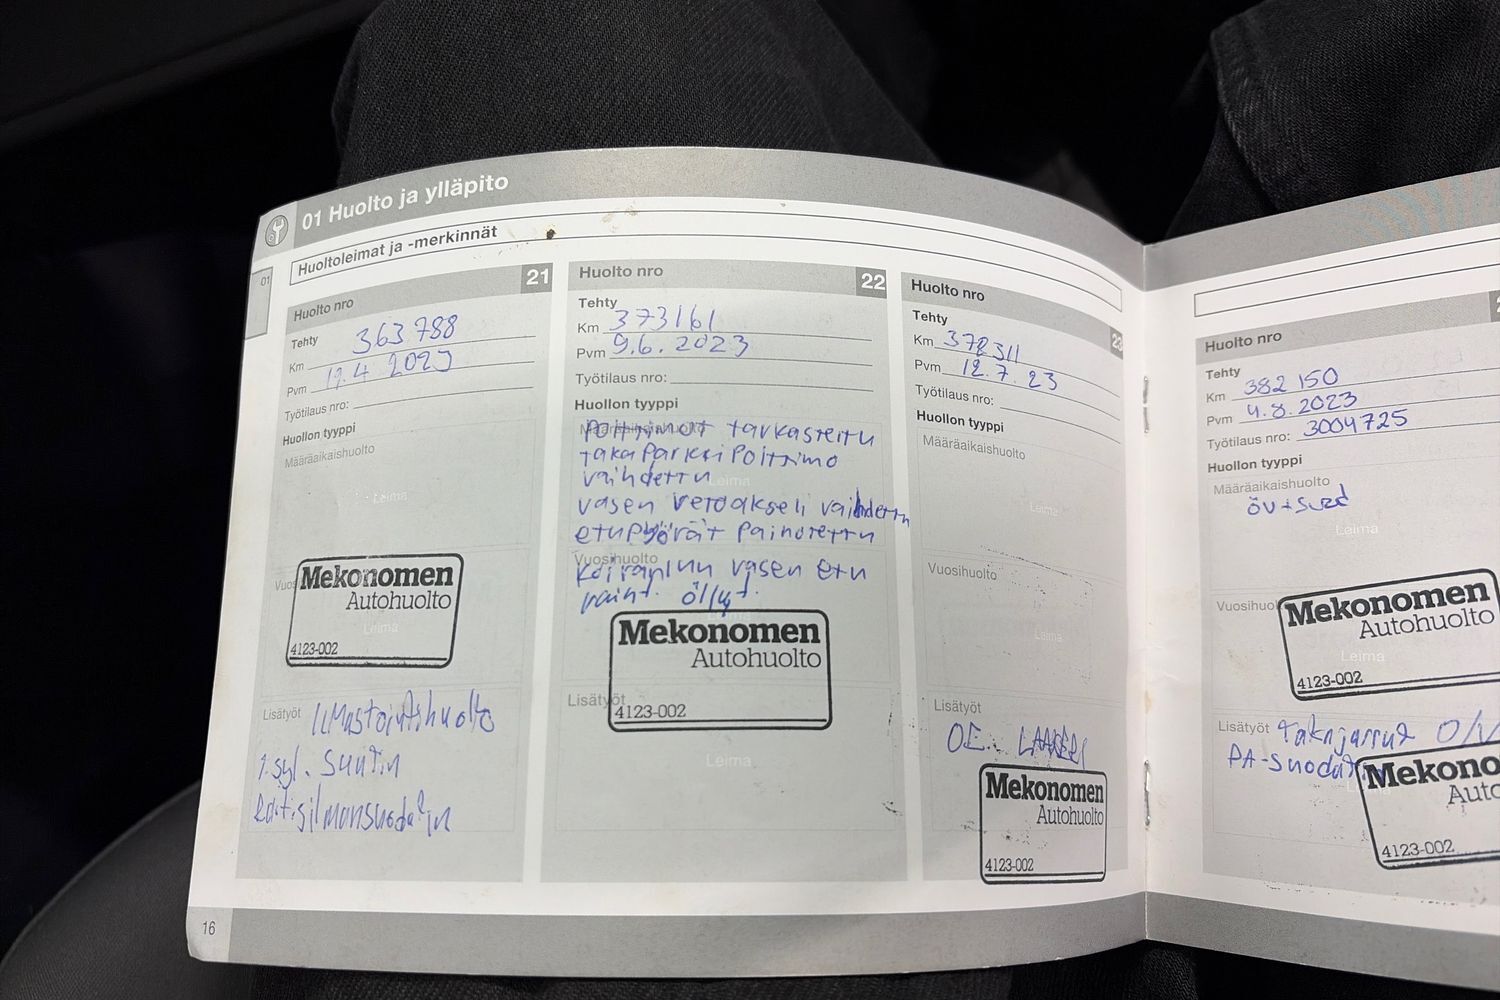 01 Huolto ja ylläpito
Huoltoleimat ja -merkinnät
01
Huolto nro 21
Tehty
Km 363 788
Pvm 2023
Työtilaus nro:
Huollon tyyppi
Määräaikaishuolto
Leima
Mekonomen
Autohuolto
Leima
4123-002
Lisätyöt Ilmastointihuolto
1.syl. suutin
Huolto nro 22
Tehty
Km 373161
Pvm 9.6. 2023
Työtilaus nro:
Huollon tyyppi
Määräaikaishuolto
Polttimot tarkastettu
taka Parkki Polttimo
vaihdettu
Leima
vasen vetoakseli vaihdettu
etupyörät Painotettu
Vuosihuolto
Koiranluu vasen etu
vaiht. öljyt.
Mekonomen
Autohuolto
Lisätyöt
4123-002
Leima
Huolto nro 23
Tehty
Km 378311
Pvm 12.7.23
Työtilaus nro:
Huollon tyyppi
Määräaikaishuolto
Leima
Vuosihuolto
Leima
Lisätyöt
OE.
Mekonomen
Autohuolto
4123-002
16
Huolto nro
Tehty
Km 382 150
Pvm 4.8.2023
Työtilaus nro: 3004725
Huollon tyyppi
Määräaikaishuolto
öv+suod
Leima
Mekonomen
Autohuolto
Leima
4123-002
Lisätyöt Takajarrut
4123-002